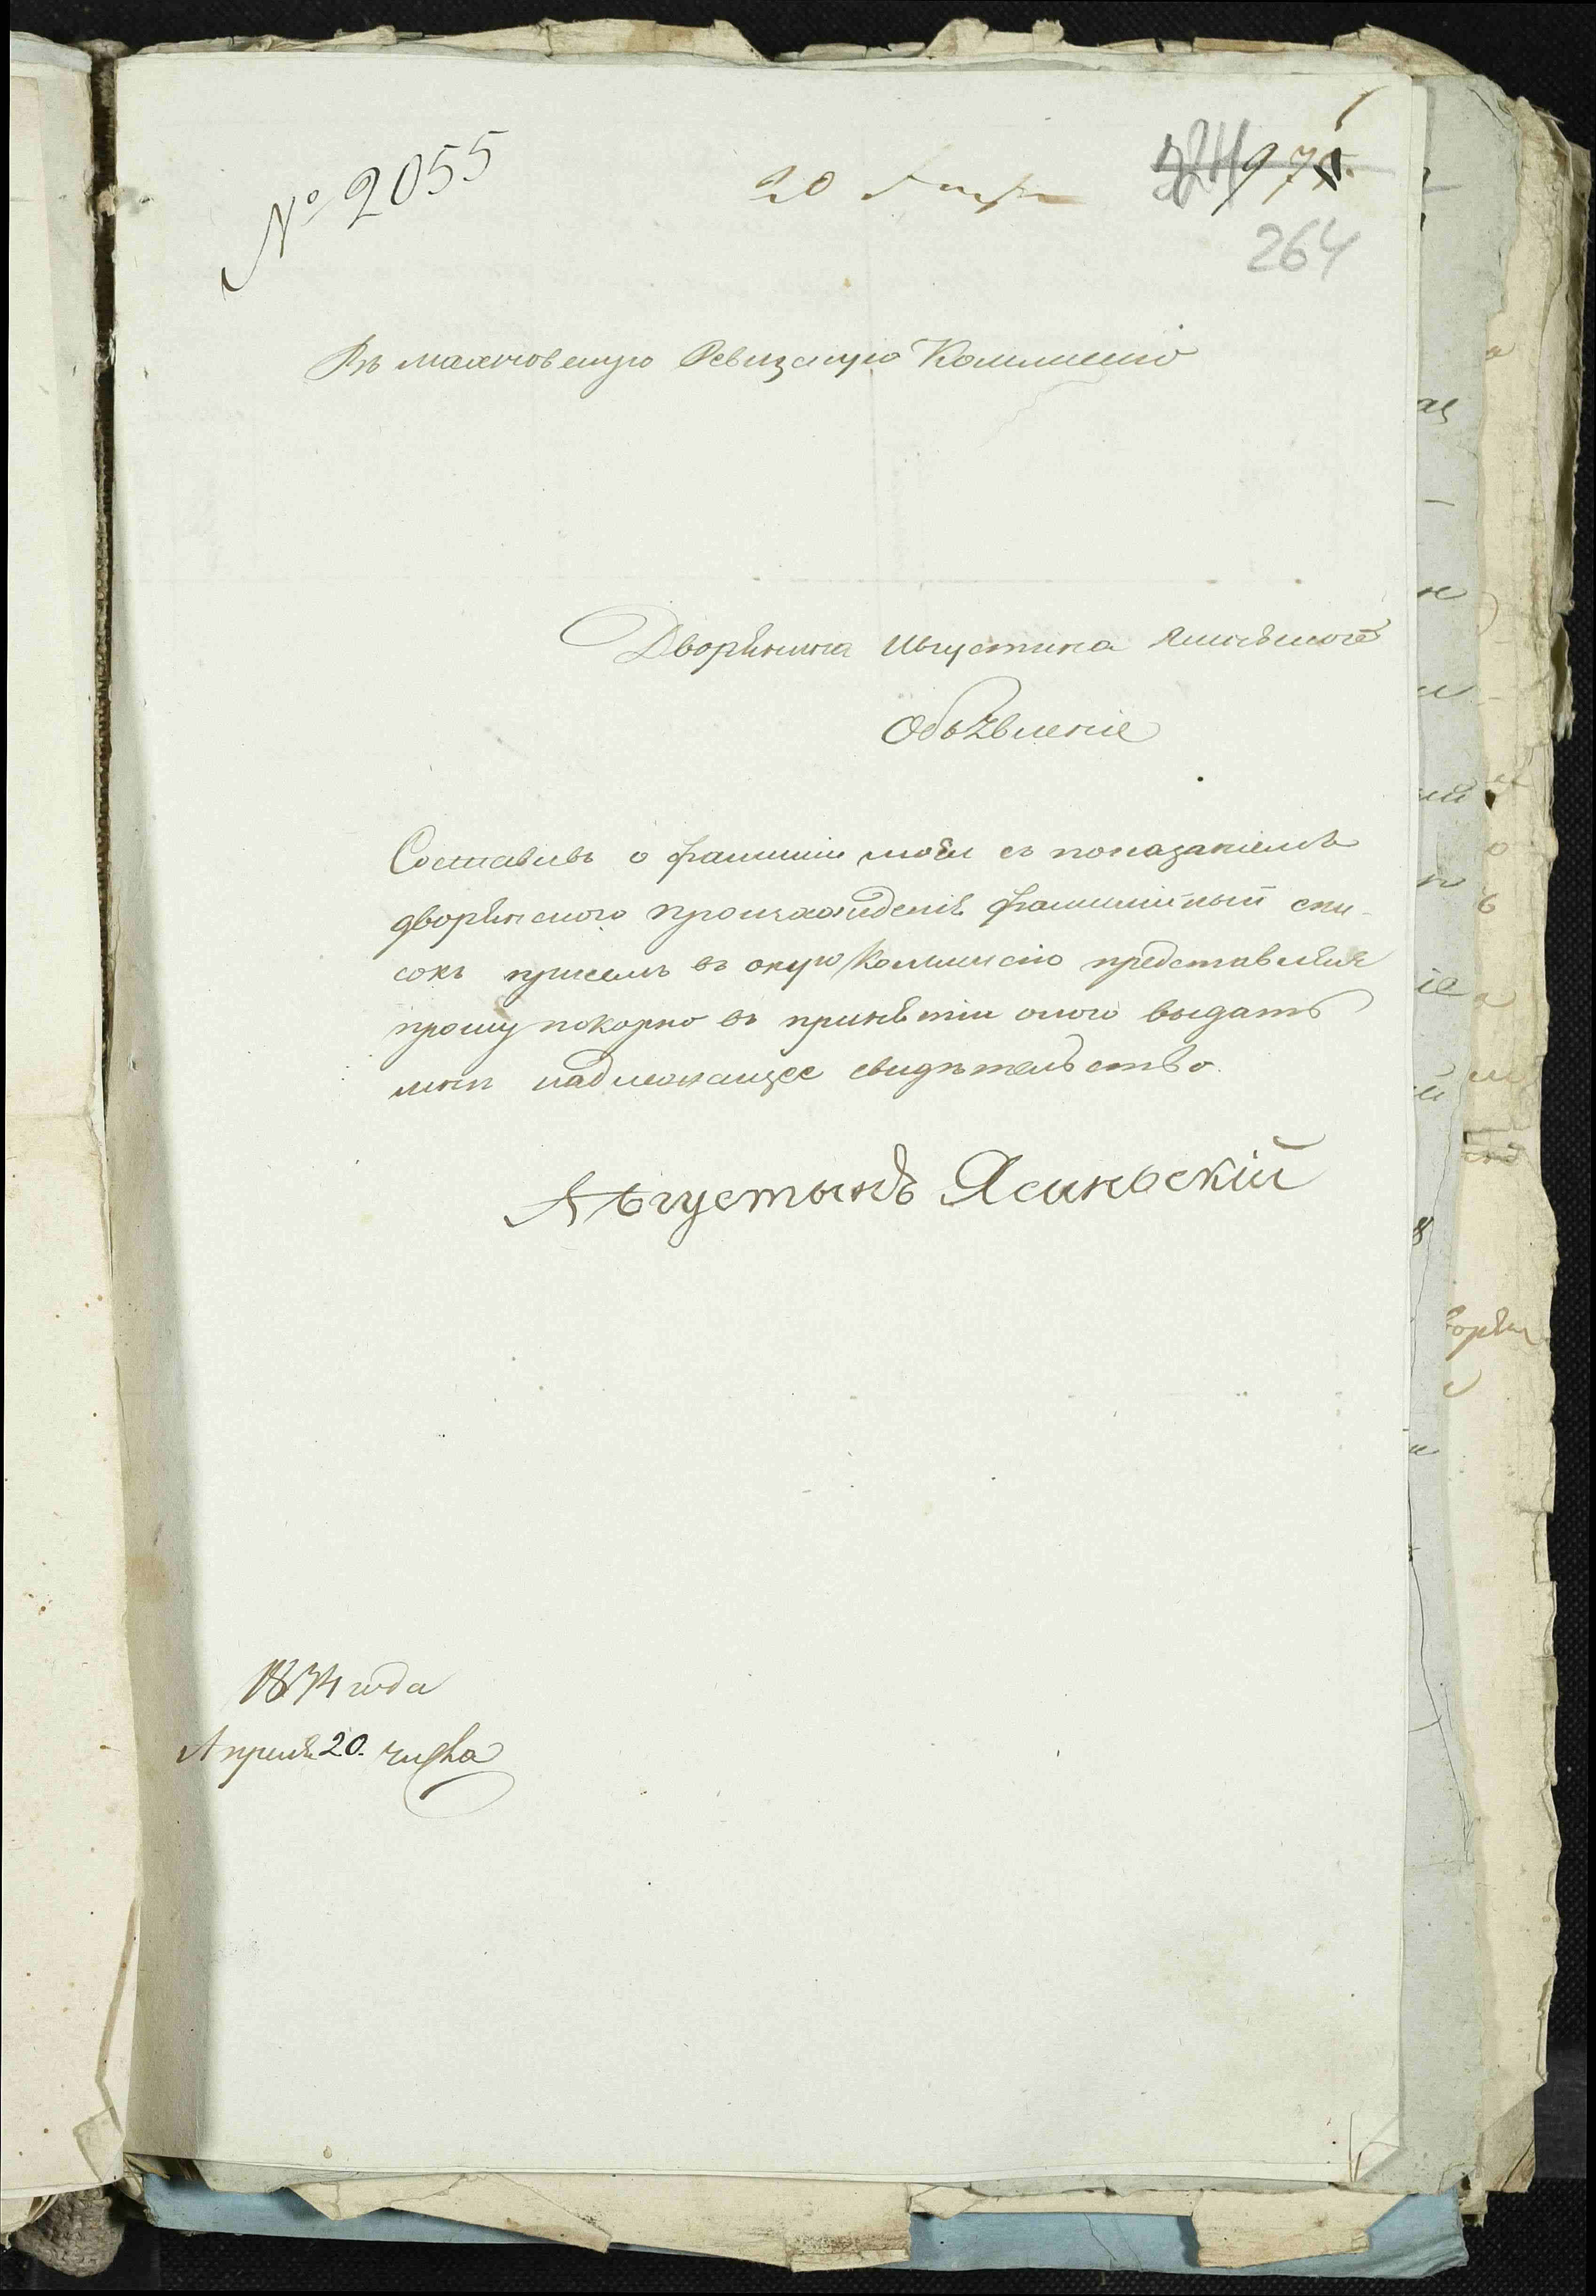 № 2055
20 Апр
975
264
Въ махновскую Ревизскую Коммисію
Дворянина Августина Ясинского
Объявленіе
Составивъ о фамиліи моей съ показаніемъ
дворянского происхожденія фамилійный спи-
сокъ присемъ въ оную Коммисію представляя
прошу покорно въ принятіи оного выдать
мнѣ надлежащее свидѣтельство.
Августынъ Ясиньскій
1834 года
Апреля 20. числа